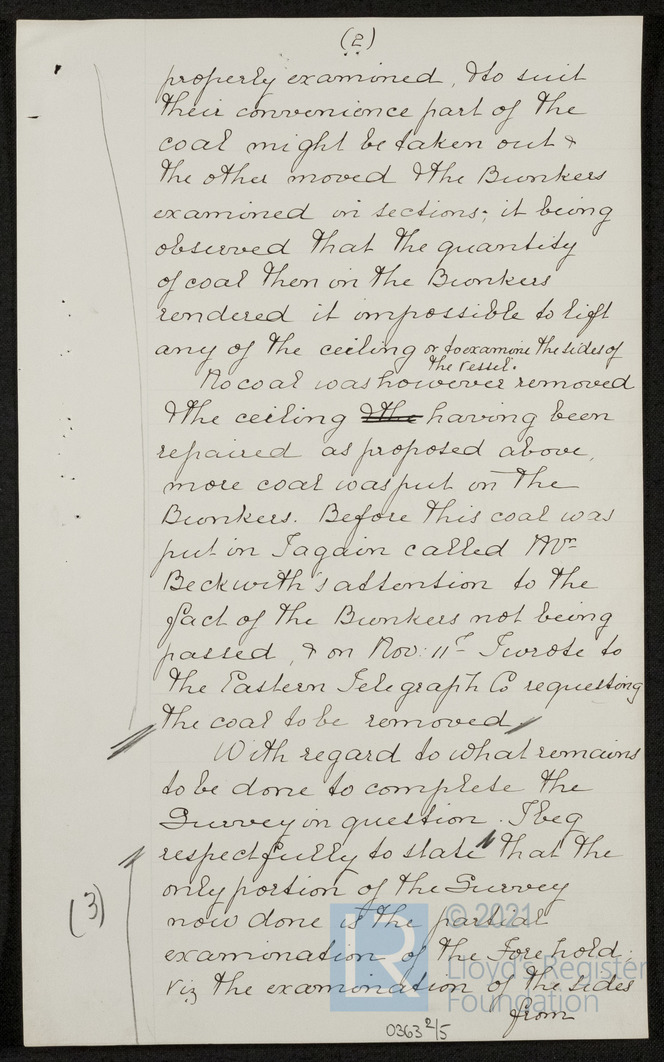 (2)
properly examined, & to suit
their convenience part of the
coal might be taken out &
the other moved & the Bunkers
examined in sections; it being
observed that the quantity
of coal then in the Bunkers
rendered it impossible to lift
any of the ceiling or to examine the sides of
the vessel.
No coal was however removed
& the ceiling & the having been
repaired as proposed above,
more coal was put in the
Bunkers. Before this coal was
put in I again called Mr
Beckwith's attention to the
fact of the Bunkers not being
passed, & on Nov: 11th I wrote to
the Eastern Telegraph Co requesting
the coal to be removed
With regard to what remains
to be done to complete the
Survey in question. I beg
respectfully to state that the
only portion of the Survey
(3)
now done is the partial
examination of the Fore hold.
viz the examination of the sides
from
0363 2/5
LR
© 2021
Lloyd's Register
Foundation